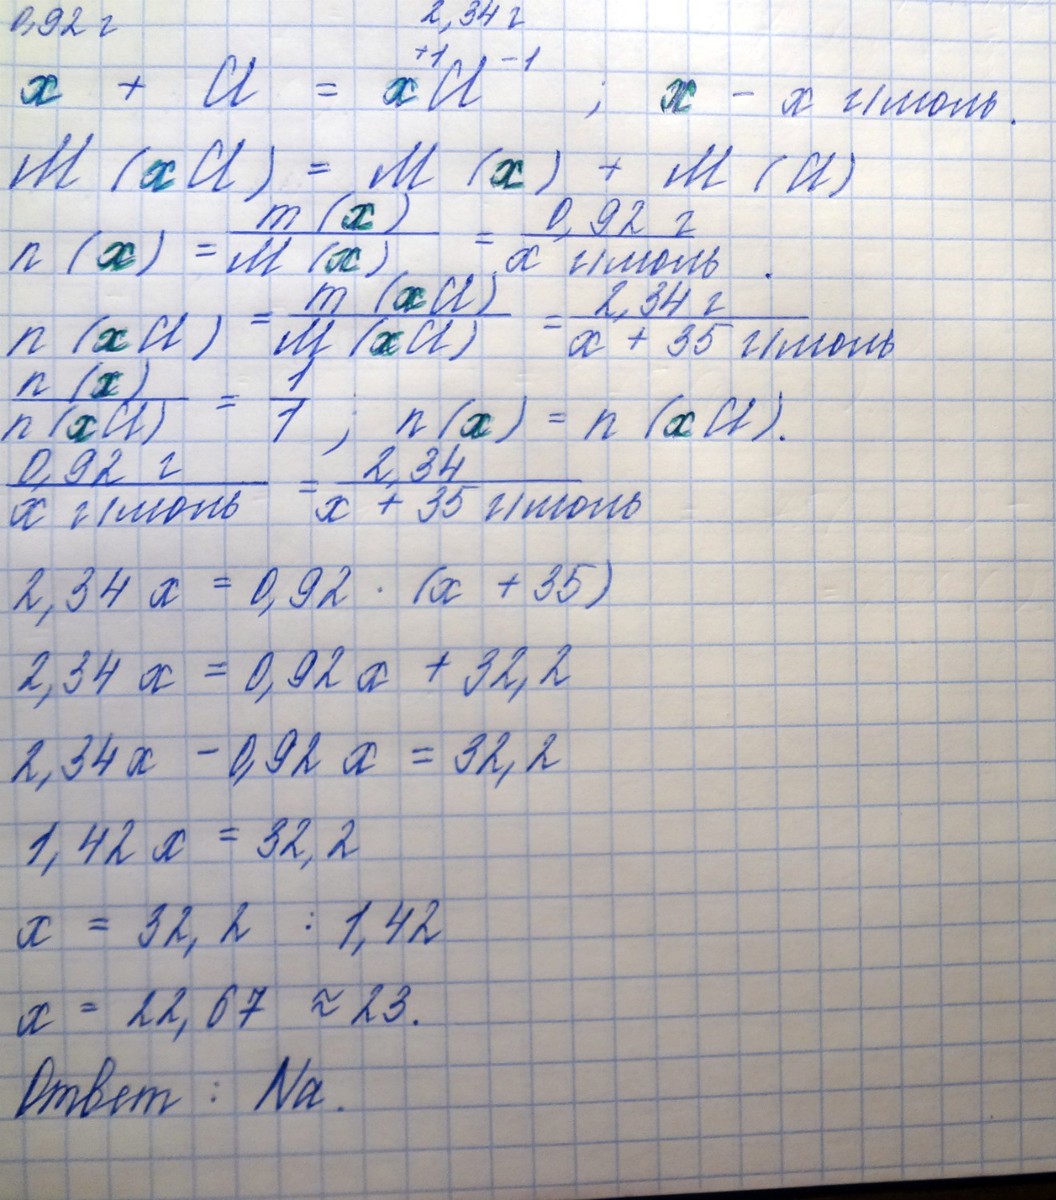 0,92 г 2,34 г
x + Cl = x⁺¹Cl⁻¹ ; x - x г/моль.
M (xCl) = M (x) + M (Cl)
n (x) = m (x) / M (x) = 0,92 г / x г/моль .
n (xCl) = m (xCl) / M (xCl) = 2,34 г / x + 35 г/моль
n (x) / n (xCl) = 1 / 1 ; n (x) = n (xCl).
0,92 г / x г/моль = 2,34 / x + 35 г/моль
2,34 x = 0,92 · (x + 35)
2,34 x = 0,92 x + 32,2
2,34x - 0,92 x = 32,2
1,42 x = 32,2
x = 32,2 : 1,42
x = 22,67 ≈ 23.
Ответ : Na.